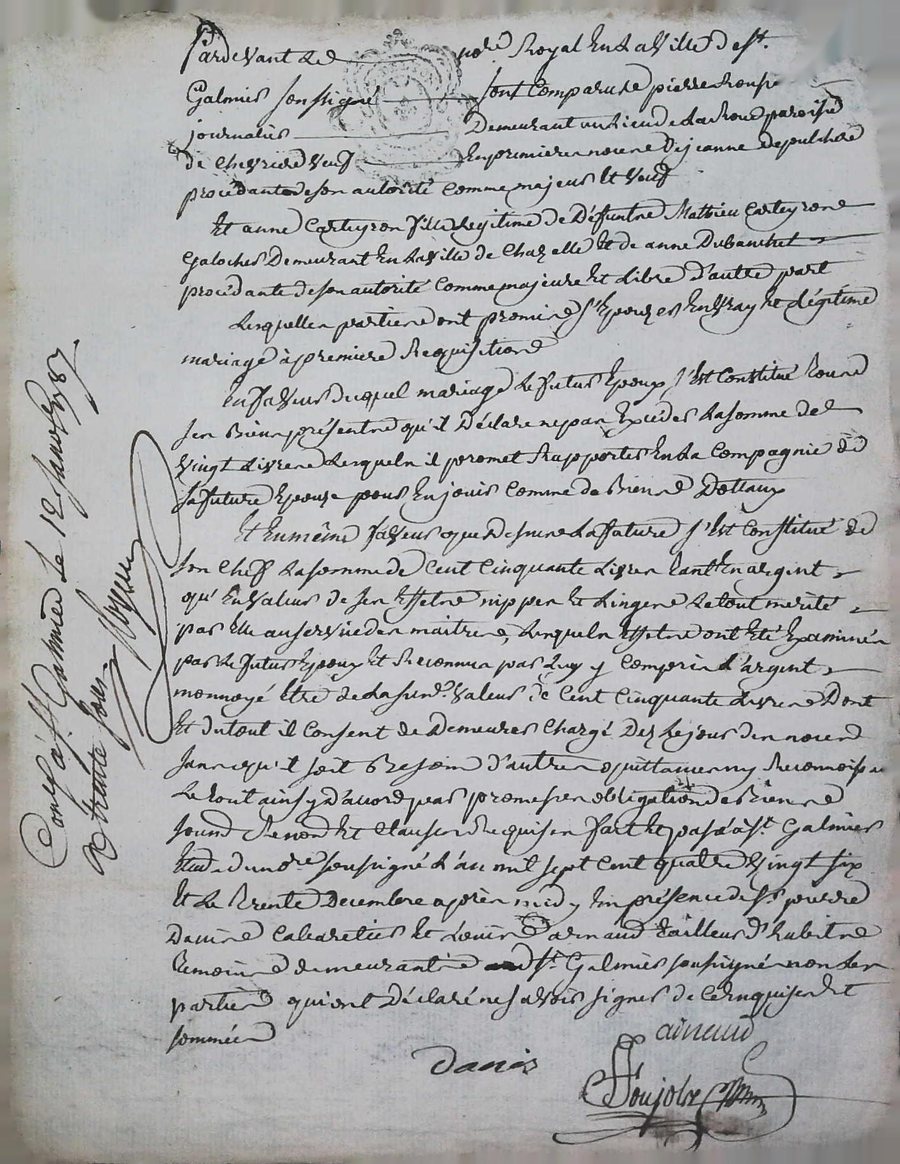 Pardevant Le not.re Royal En La Ville de St.
Galmier soussigné sont Comparus pierre
journalier Demeurant au Lieu de La paroisse
de Chevriere Veuf En premiere noces De jeanne
procédant de son autorité Comme majeur Et Veuf
Et anne Carteyron fille Legitime de Défunts Mathieu Carteyron
Galocher Demeurant En La Ville de Chazelle Et de anne Dubanchet
procédante de son autorité Comme majeure Et Libre D'autre part
Lesquelles parties ont promis s'Epouzer En Vray Et Légitime
mariage à premiere Requisition
En faveur duquel mariage Le futur Epoux s'Est Constitué Tous
ses Biens présents qu'il Déclare ne pas Excéder La somme de
Vingt Livres Lesquels il promet Rapporter En La Compagnie de
sa future Epouse pour En jouir Comme de Biens Dottaux
Et En même faveur que Dessus La future s'Est Constitué de
son Cheff La somme de Cent Cinquante Livres Tant En argent
qu'En Valeur de ses Effets nippes Et Linges Le tout merité
par Elle au service des maitres, Lesquels Effets ont Eté Examinés
par Le futur Epoux Et Reconnus par Luy y Compris L'argent
monnoyé Etre de La susd. Valeur de Cent Cinquante Livres Dont
Et du tout il Consent de Demeurer Chargé Dez Le jour des noces
sans qu'il soit Besoin d'autres quittances ny Reconnoissance
Le tout ainsy d'accord par promesses obligation de Biens
soumis Renon. Et Clauses Requises fait Et passé à St. Galmier
Etude du no.re soussigné L'an mil sept cent quatre Vingt six
Et Le Trente Decembre après midy En présence de Sr. pierre
Danis Cabaretier Et Louis arnaud Tailleur D'habits
Temoins demeurants à St. Galmier soussignés non Les
parties qui ont Déclaré ne savoir signer de Ce Enquises Et
sommées
arnaud
Danis
Conf. à St. Galmier Le 12 Janv. 1787
R trente sous